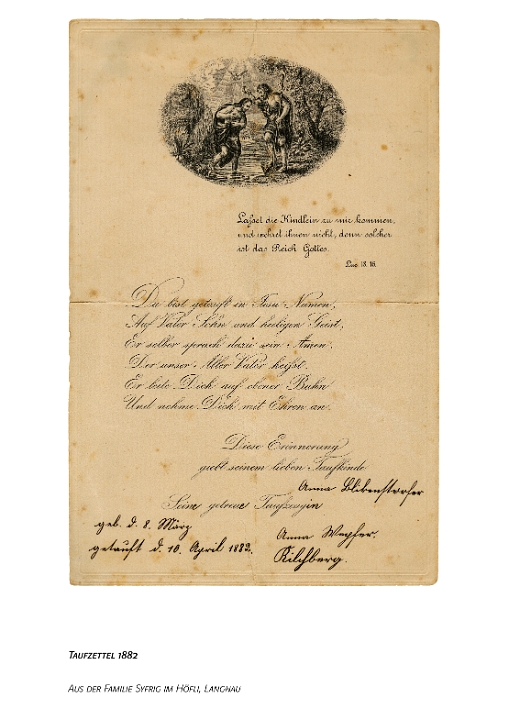 Lasset die Kindlein zu mir kommen,
und wehret ihnen nicht, denn solcher
ist das Reich Gottes.
Luc 18. 16.
Du bist getauft in Jesu Namen,
Auf Vater Sohn und heiligen Geist,
Er selber sprach dazu sein Amen,
Der unser Aller Vater heißt.
Er leite Dich auf ebner Bahn
Und nehme Dich mit Ehren an.
Diese Erinnerung
giebt seinem lieben Taufkinde
Anna
Seine getreue Taufzeugin
geb. d. 8. März
getauft d. 10. April 1882.
Anna Wepfer.
Kilchberg.
Taufzettel 1882
Aus der Familie Syfrig im Höfli, Langnau